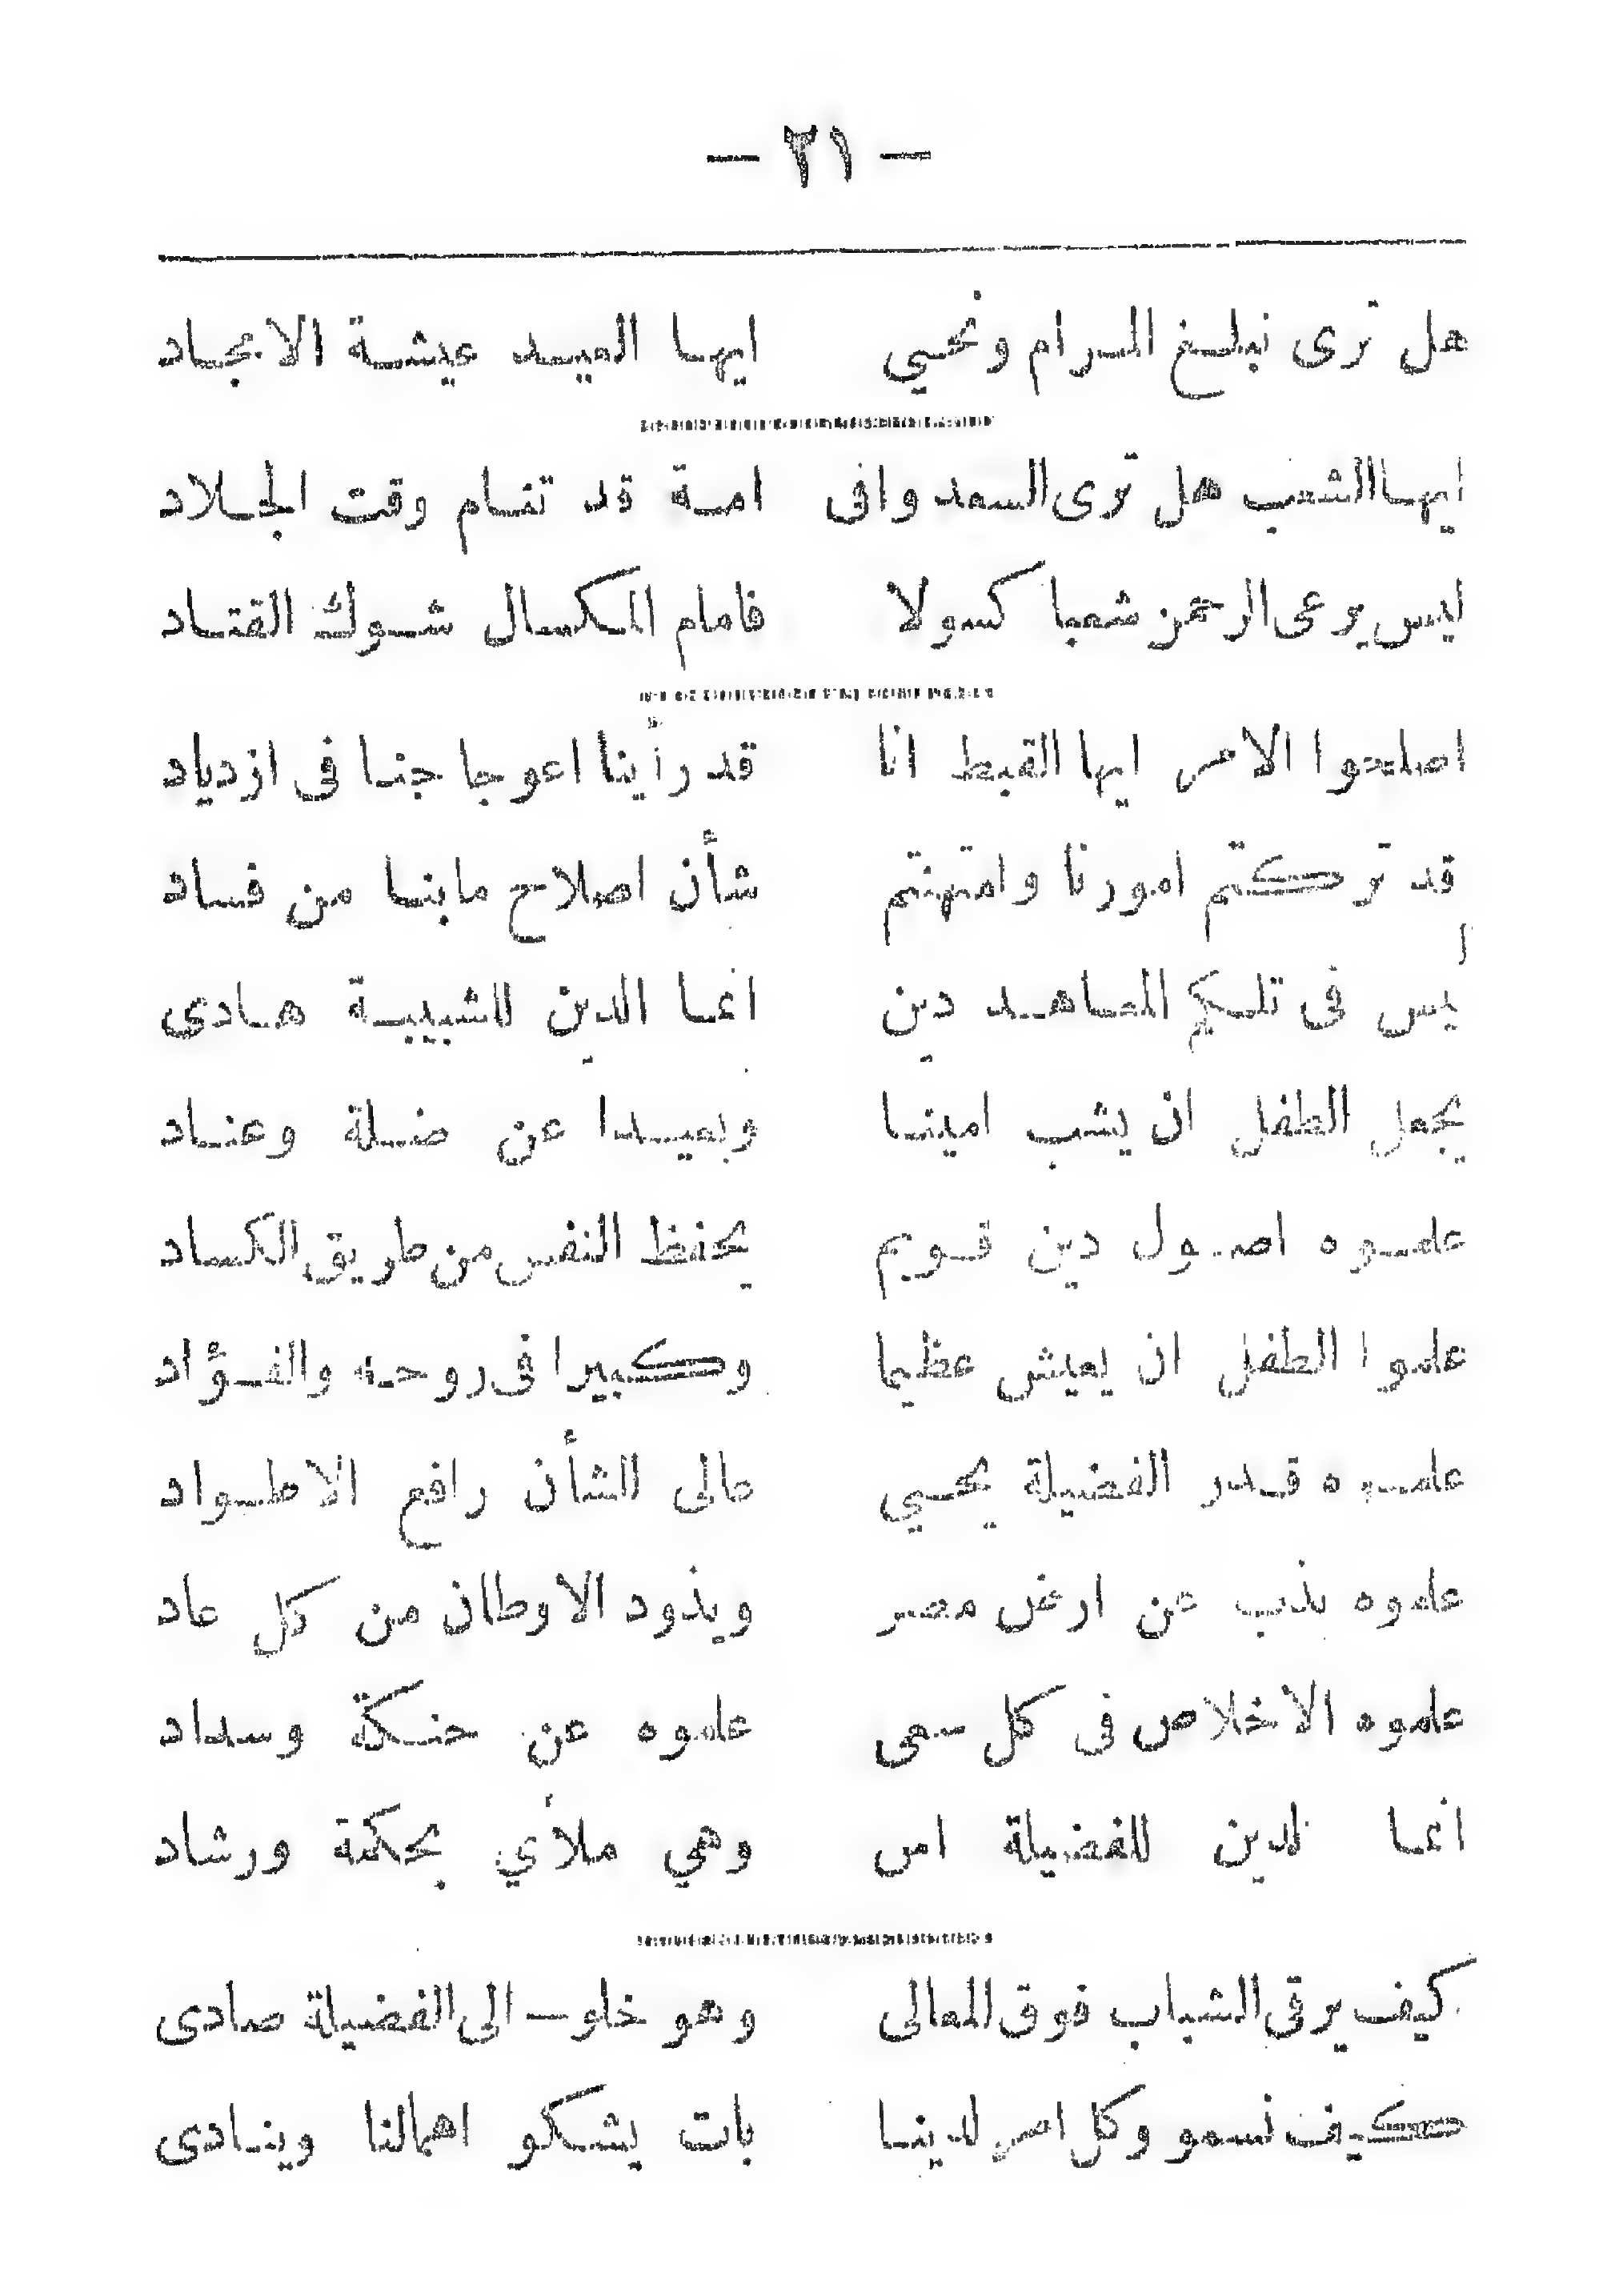 — ٢١ —
هل ترى نبلغ المرام ونحيي ايها العيد عيشة الامجاد
ايها الشعب هل ترى السعد وافى امة قد تنام وقت الجلاد
ليس يرعى الرحمن شعبا كسولا فامام المكسال شوك القتاد
اصلحوا الامر ايها القبط انا قد رأينا اعوجاجنا فى ازدياد
قد تركتم امورنا وامتهنتم شأن اصلاح مابنا من فساد
أيس فى تلكم المعاهد دين انما الدين للشبيبة هادى
يجعل الطفل ان يشب امينا وبعيدا عن ضلة وعناد
علموه اصول دين قويم يحفظ النفس من طريق الكساد
علموا الطفل ان يعيش عظيما وكبيرا فى روحه والفؤاد
علموه قدر الفضيلة يحيي عالى الشأن رافع الاطواد
علموه يذب عن ارض مصر ويذود الاوطان من كل عاد
علموه الاخلاص فى كل سعى علموه عن حنكة وسداد
انما الدين للفضيلة اس وهي ملأي بحكمة ورشاد
كيف يرقى الشباب فوق المعالى وهو خلو — الى الفضيلة صادى
كيف نسمو وكل امر لدينا بات يشكو اهمالنا وينادى